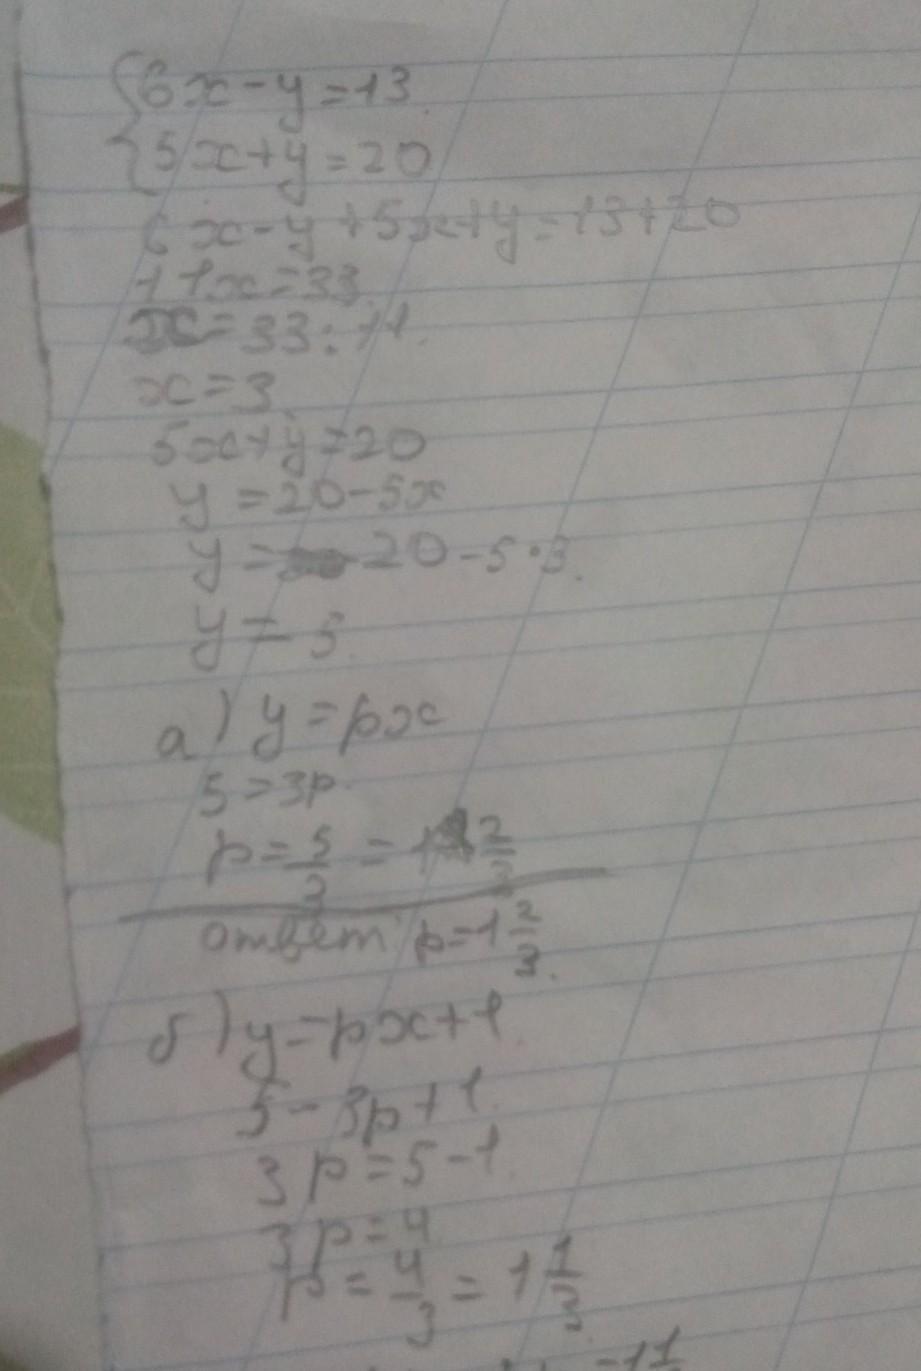 {6x-y=13
{5x+y=20
6x-y+5x+y=13+20
11x=33
x=33:11.
x=3
5x+y=20
y=20-5x
y=20-5·3.
y=5
а) y=px
5=3p
p=5/3=1 2/3
ответ p=1 2/3.
б) y=px+1
5=3p+1.
3p=5-1
3p=4
p=4/3=1 1/3